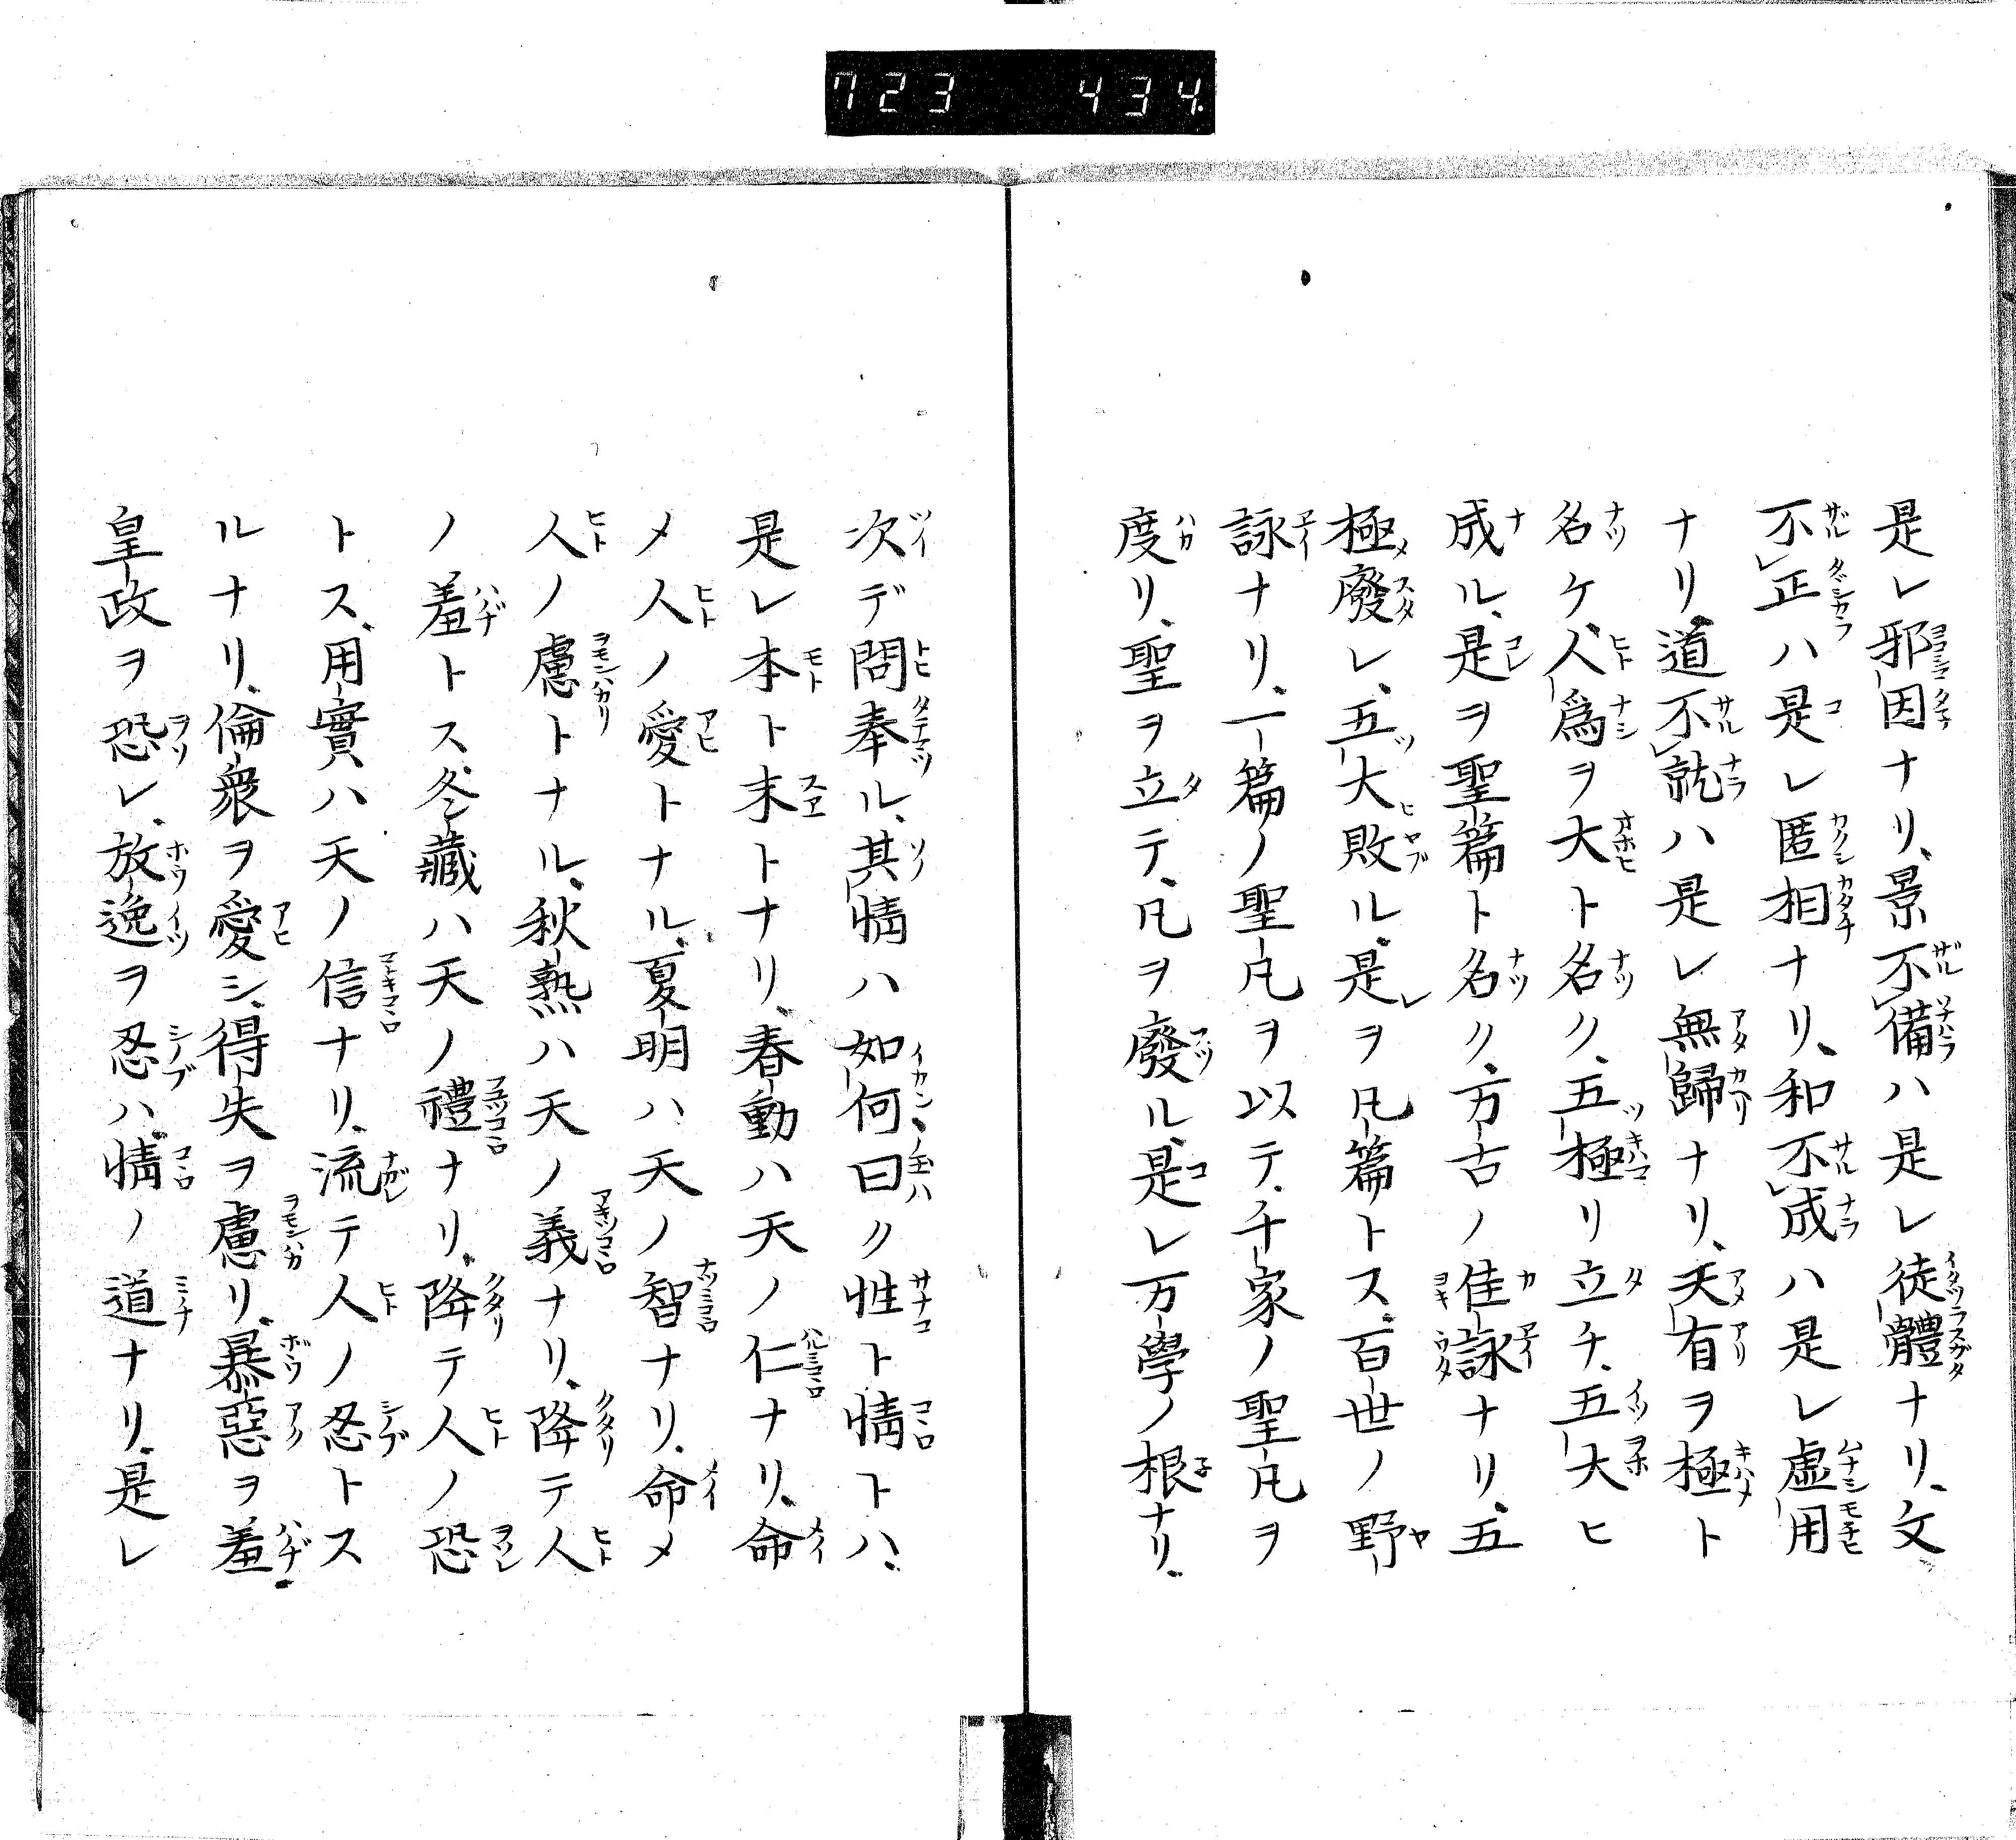 723 434
是レ邪因ナリ、景不備ハ是レ徒體ナリ、文
不正ハ是レ匿相ナリ、和不成ハ是レ虚用
ナリ、道不就ハ是レ無歸ナリ、天有ヲ極ト
名ケ、人爲ヲ大ト名ク、五極リ立チ、五大ヒ
成ル、是ヲ聖篇ト名ク、方古ノ佳詠ナリ、五
極廢レ、五大敗ル、是ヲ凡篇トス、百世ノ野
詠ナリ、一篇ノ聖凡ヲ以テ、千家ノ聖凡ヲ
度リ、聖ヲ立テ、凡ヲ廢ル、是レ万學ノ根ナリ、
次デ問奉ル、其情ハ如何、曰ク性ト情トハ、
是レ本ト末トナリ、春動ハ天ノ仁ナリ、命
メ人ノ愛トナル、夏明ハ天ノ智ナリ、命メ
人ノ慮トナル、秋熟ハ天ノ義ナリ、降テ人
ノ羞トス、冬藏ハ天ノ禮ナリ、降テ人ノ恐
トス、用實ハ天ノ信ナリ、流テ人ノ忍トス
ルナリ、倫衆ヲ愛シ、得失ヲ慮リ、暴惡ヲ羞、
皇政ヲ恐レ、放逸ヲ忍ハ、情ノ道ナリ、是レ